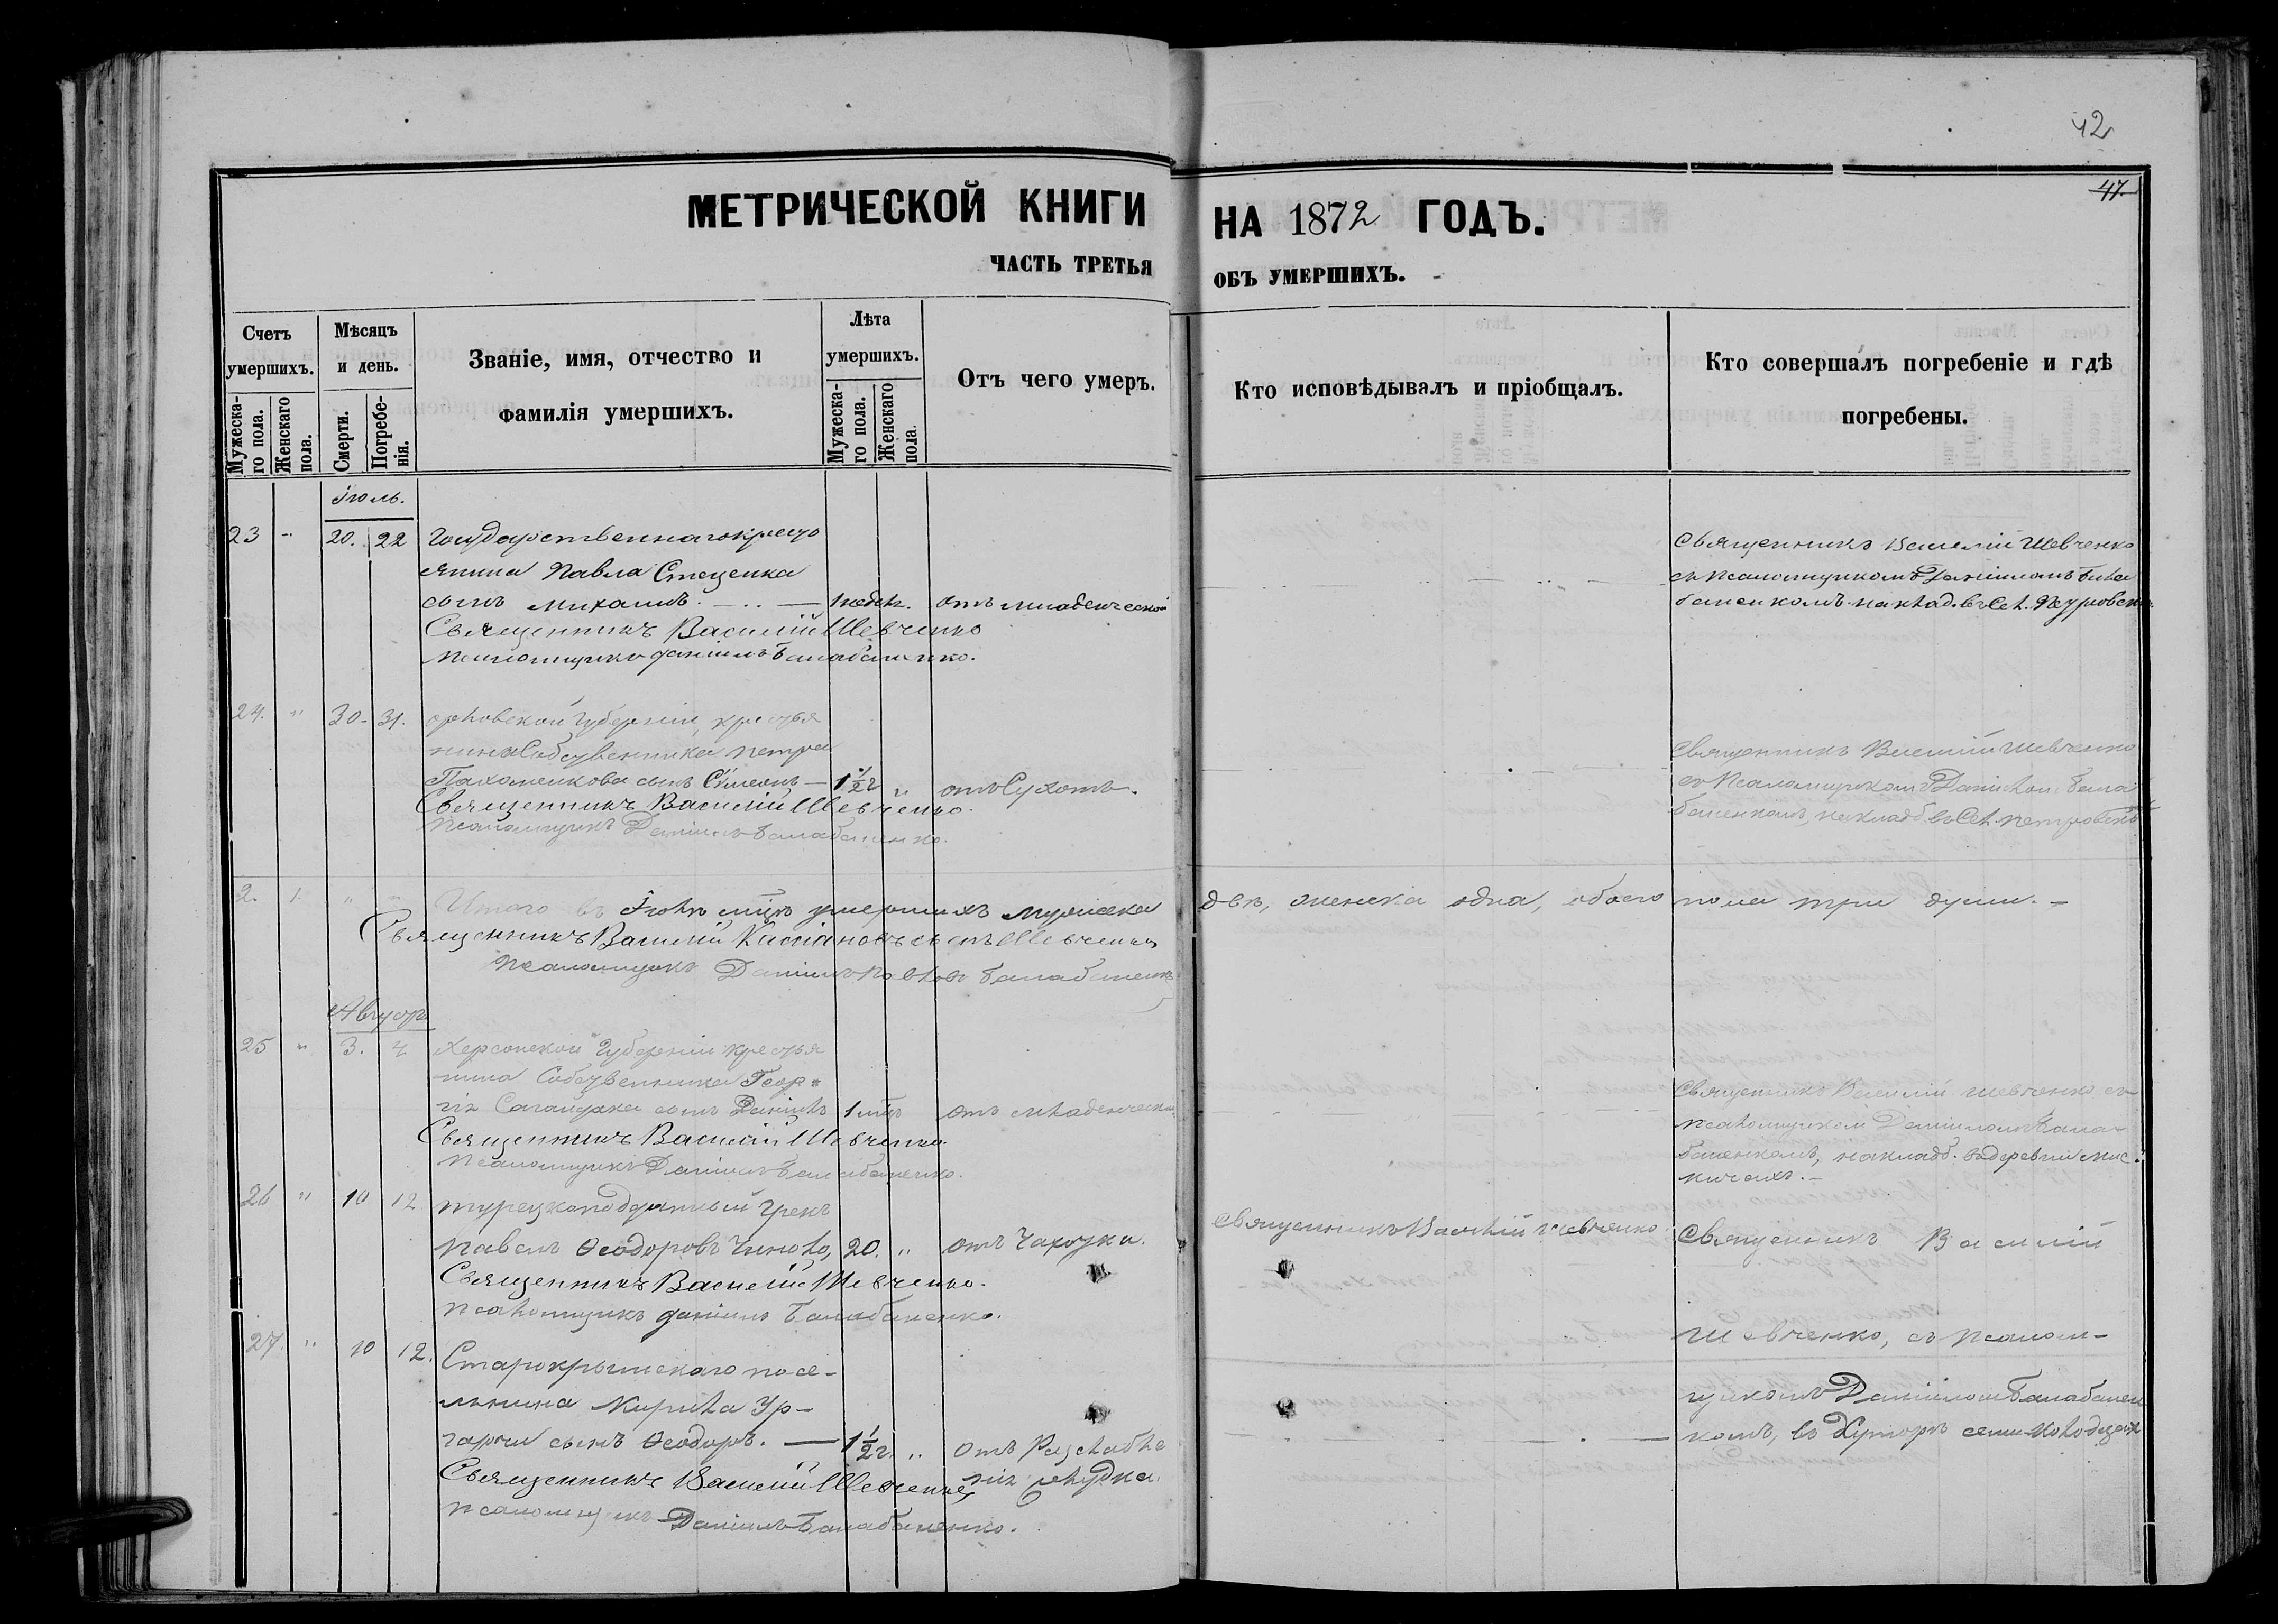 42
47.
МЕТРИЧЕСКОЙ КНИГИ НА 1872 ГОДЪ.
ЧАСТЬ ТРЕТЬЯ ОБЪ УМЕРШИХЪ.
Счетъ умершихъ.
Мужеска-го пола.
Женскаго пола.
Мѣсяцъ и день.
Смерти.
Погребе-нія.
Званіе, имя, отчество и фамилія умершихъ.
Лѣта умершихъ.
Мужеска-го пола.
Женскаго пола.
Отъ чего умеръ.
Кто исповѣдывалъ и пріобщалъ.
Кто совершалъ погребеніе и гдѣ погребены.
Іюль.
23 " 20. 22 Государственнаго кресть
янина Павла Стеценка
сынъ Михаилъ. отъ младенческой
Священникъ Василій Шевченко
съ Псаломщикомъ Даніиломъ Бала
баненкомъ на клад. въ Сел.
Священникъ Василій Шевченко
Псаломщикъ Даніилъ Балабаненко.
24. " 30. 31. Орловской Губерніи, крестья
нина Собственника Петра
Пахоменкова сынъ Сѵмеонъ 1½ г. " отъ Сухотъ.
Священникъ Василій Шевченко
съ Псаломщикомъ Даніилом Бала
баненкомъ, на кладб. въ Сел. Петровскѣ
Священникъ Василій Шевченко.
Псаломщикъ Даніилъ Балабаненко.
2. 1. " " Итого въ Іюлѣ мцѣ умершихъ мужеска двѣ, женска одна, обоего пола три души.
Священникъ Василій Кассіановъ сынъ Шевченко
Псаломщикъ Даніилъ Балабаненко
Августъ
25 " 3. 4. Херсонской Губерніи крестья
нина Собственника Геор-
гія Сагайдака сынъ Даніилъ 1 мцъ отъ младенческой
Священникъ Василій Шевченко съ
псаломщиком Даніиломъ Бала-
баненкомъ, на кладб. въ деревни
Священникъ Василій Шевченко.
Псаломщикъ Даніилъ Балабаненко.
26 " 10 12 турецкоподданный Грекъ
Павелъ Ѳеодоровъ 20. " отъ Чахотки.
Священникъ Василій Шевченко
Священникъ Василій
Шевченко, съ псалом-
щикомъ Даніиломъ Балабанен
комъ, въ Хуторѣ семи Колодезях
Священникъ Василій Шевченко.
Псаломщикъ Даніилъ Балабаненко.
27. " 10 12. Старокрымскаго посе-
лянина Кирила Ур-
гарчи сынъ Ѳеодоръ. 1½ г. " Отъ Разслабле
нія желудка.
Священникъ Василій Шевченко
псаломщикъ Даніилъ Балабаненко.